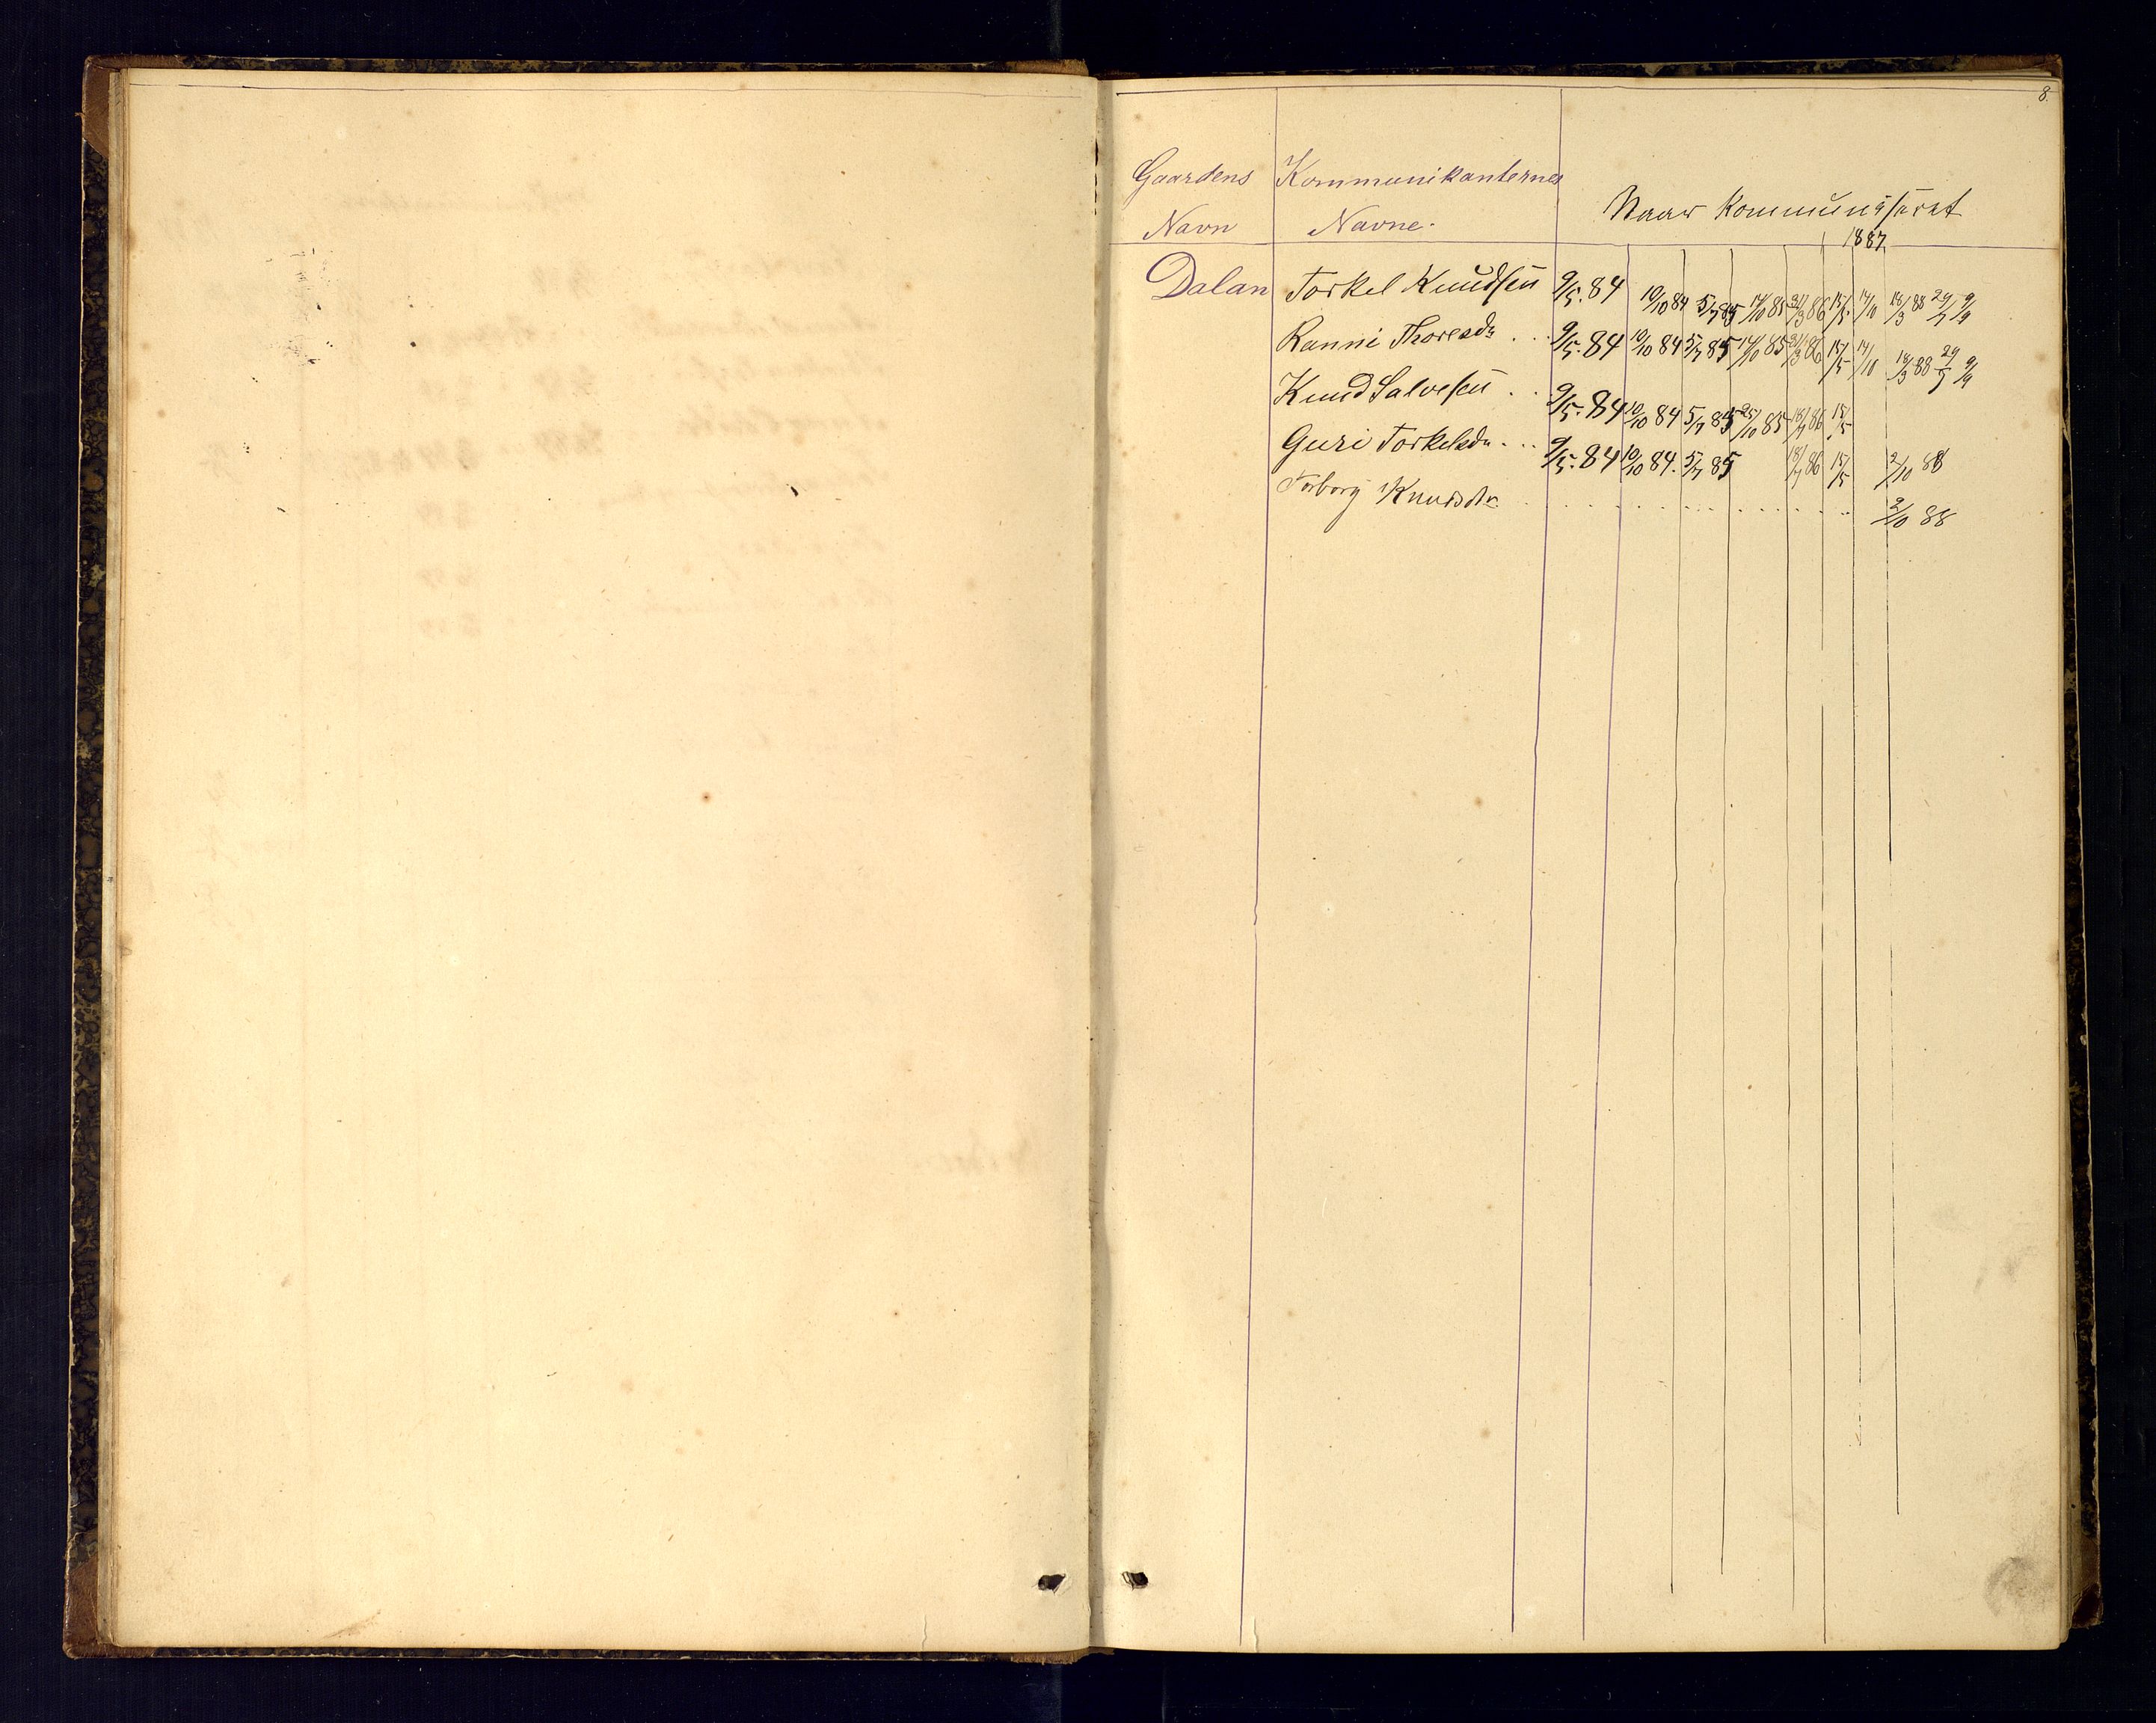 8.
Gaardens Kommunikanternes
Navn Navne. Naar kommuniseret
1887
Dalan Torkel Knudsen 9/5. 84 10/10 84 5/7 85 14/10 85 21/3 86 15/5 14/10 18/3 88 29/7 9/9
Ranni Thoresdr . . 9/5. 84 10/10 84 5/7 85 14/10 85 21/3 86 15/5 14/10 18/3 88 29/7 9/9
Knud Salvesen . . 9/5. 84 10/10 84 5/7 85 25/10 85 18/7 86 15/5
Guri Torkelsdr . . . 9/5. 84 10/10 84. 5/7 85 18/7 86 15/5 2/10 88
Torborg Knudsdr. . . . . . . . . . . . . . . . 2/10 88